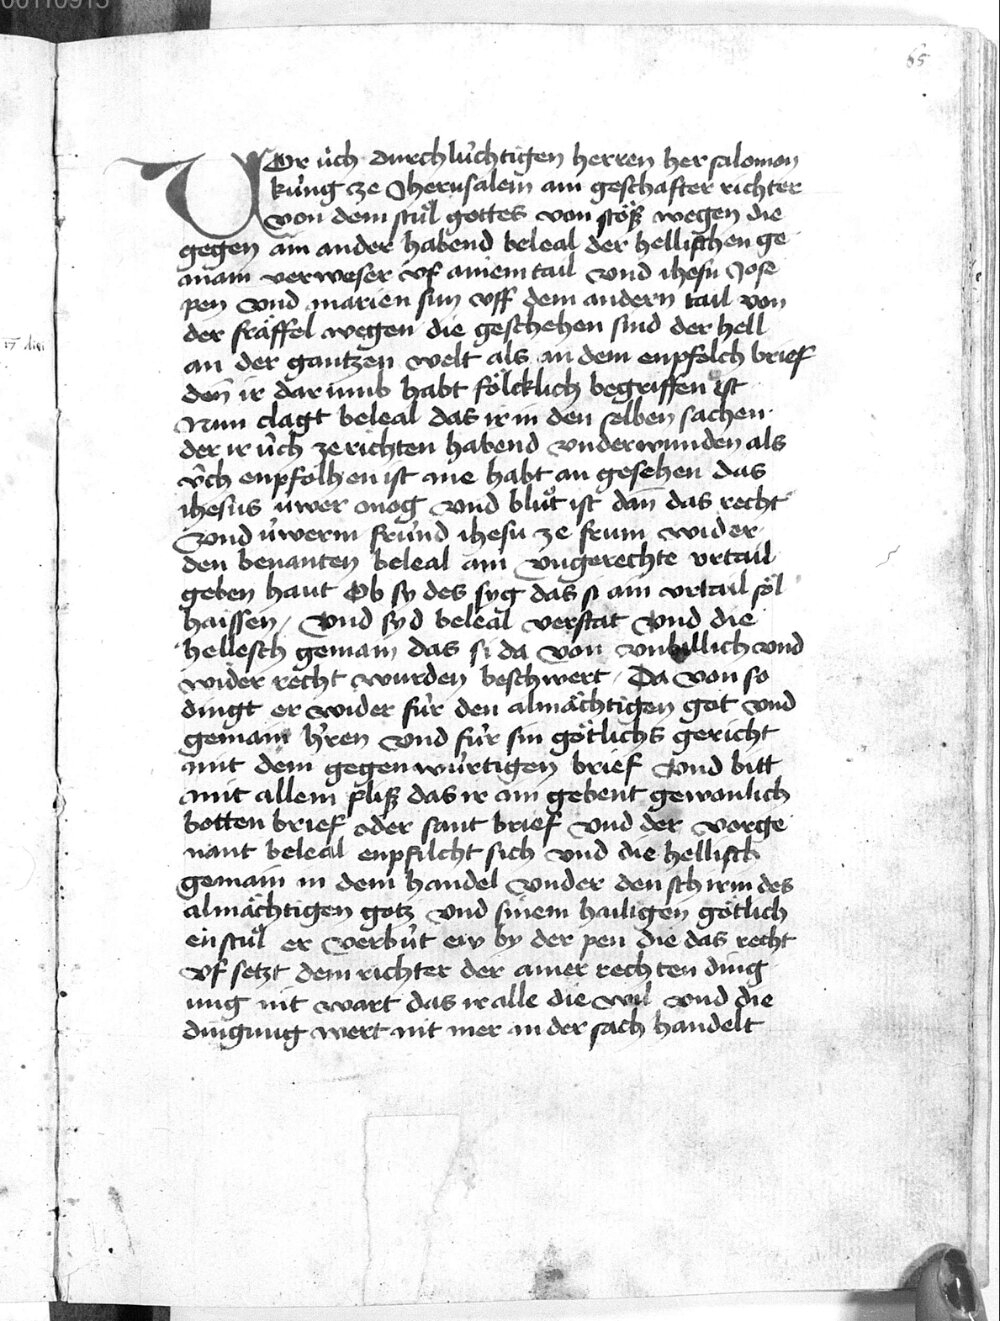 00110915
65
VOr üch durchlüchtigen herren her salomon
küng ze Jherusalem ain geschafter richter
von dem stůl gottes von stöß wegen die
gegen ain ander habend beleal der hellischen ge
main verweser vf ainem tail vnd ihesu Jose
pen vnd marien sun vff dem andern tail von
der fräffel wegen die geschehen sind der hell
an der gantzen welt als an dem enpfelch brief
den ir dar umb habt fölcklich begriffen ist
Nun clagt beleal das ir in den selben sachen
der ir üch ze richten habend vnderwunden als
üch enpfolhen ist nie habt an gesehen das
ihesus üwer mog vnd blůt ist dan das recht
vnd üwerm fründ ihesu ze frum wider
den benanten beleal ain vngerechte vrtail
geben haut Ob sy des syg das si ain vrtail söl
haissen / Vnd syd beleal verstat vnd die
hellesch gemain das si da von vnbillich vnd
wider recht wurden beschwert / Da von so
dingt er wider für den almächtigen got vnd
gemain h'ren vnd für sin götlichs gericht
mit dem gegenwürtigen brief Vnd bitt
mit allem pliß das ir im gebent gewonlich
botten brief oder sant brief vnd der vorge
nant beleal enpfilcht sich vnd die hellisch
gemain in dem handel vnder den schirm des
almächtigen gotz vnd sinem hailigen götlich
en stůl er verbüt ew by der pen die das recht
vf setzt dem richter der ainer rechten ding
ung nit wart das ir alle die wil vnd die
dingung wert nit mer in der sach handelt